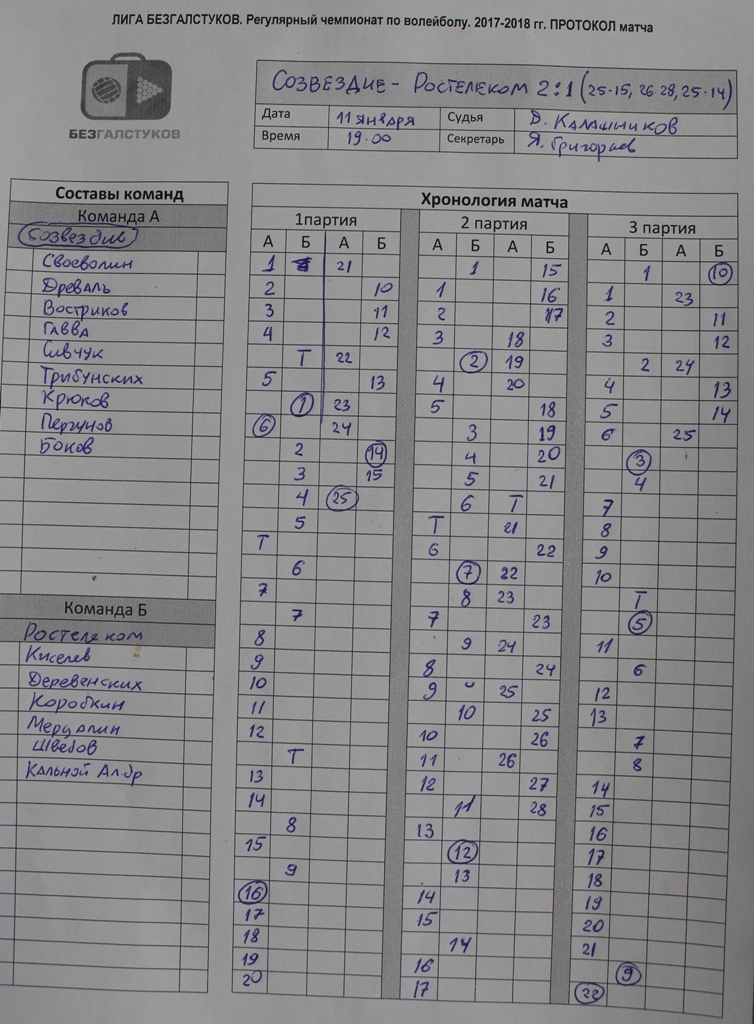 ЛИГА БЕЗГАЛСТУКОВ. Регулярный чемпионат по волейболу. 2017-2018 гг. ПРОТОКОЛ матча
БЕЗГАЛСТУКОВ
Созвездие - Ростелеком 2:1 (25-15, 26-28, 25-14)
Дата 11 января Судья Д. Калашников
Время 19-00 Секретарь Я. Григорьев
Составы команд
Команда А
Созвездие
Своеволин
Древаль
Востриков
Гавва
Сивчук
Трибунских
Крюков
Пергунов
Боков
Команда Б
Ростелеком
Киселев
Деревенских
Коробкин
Мерцалин
Швебов
Кальной
Хронология матча
1партия 2 партия 3 партия
А Б А Б А Б А Б А Б А Б
1 21 1 15 1 10
2 10 1 16 1 23
3 11 2 17 2 11
4 12 3 18 3 12
Т 22 2 19 2 24
5 13 4 20 4 13
1 23 5 18 5 14
6 24 3 19 6 25
2 14 4 20 3
3 15 5 21 4
4 25 6 Т 7
5 Т 21 8
Т 6 22 9
6 7 22 10
7 8 23 Т
7 7 23 5
8 9 24 11
9 8 24 6
10 9 25 12
11 10 25 13
12 10 26 7
Т 11 26 8
13 12 27 14
14 11 28 15
8 13 16
15 12 17
9 13 18
16 14 19
17 15 20
18 14 21
19 16 9
20 17 22